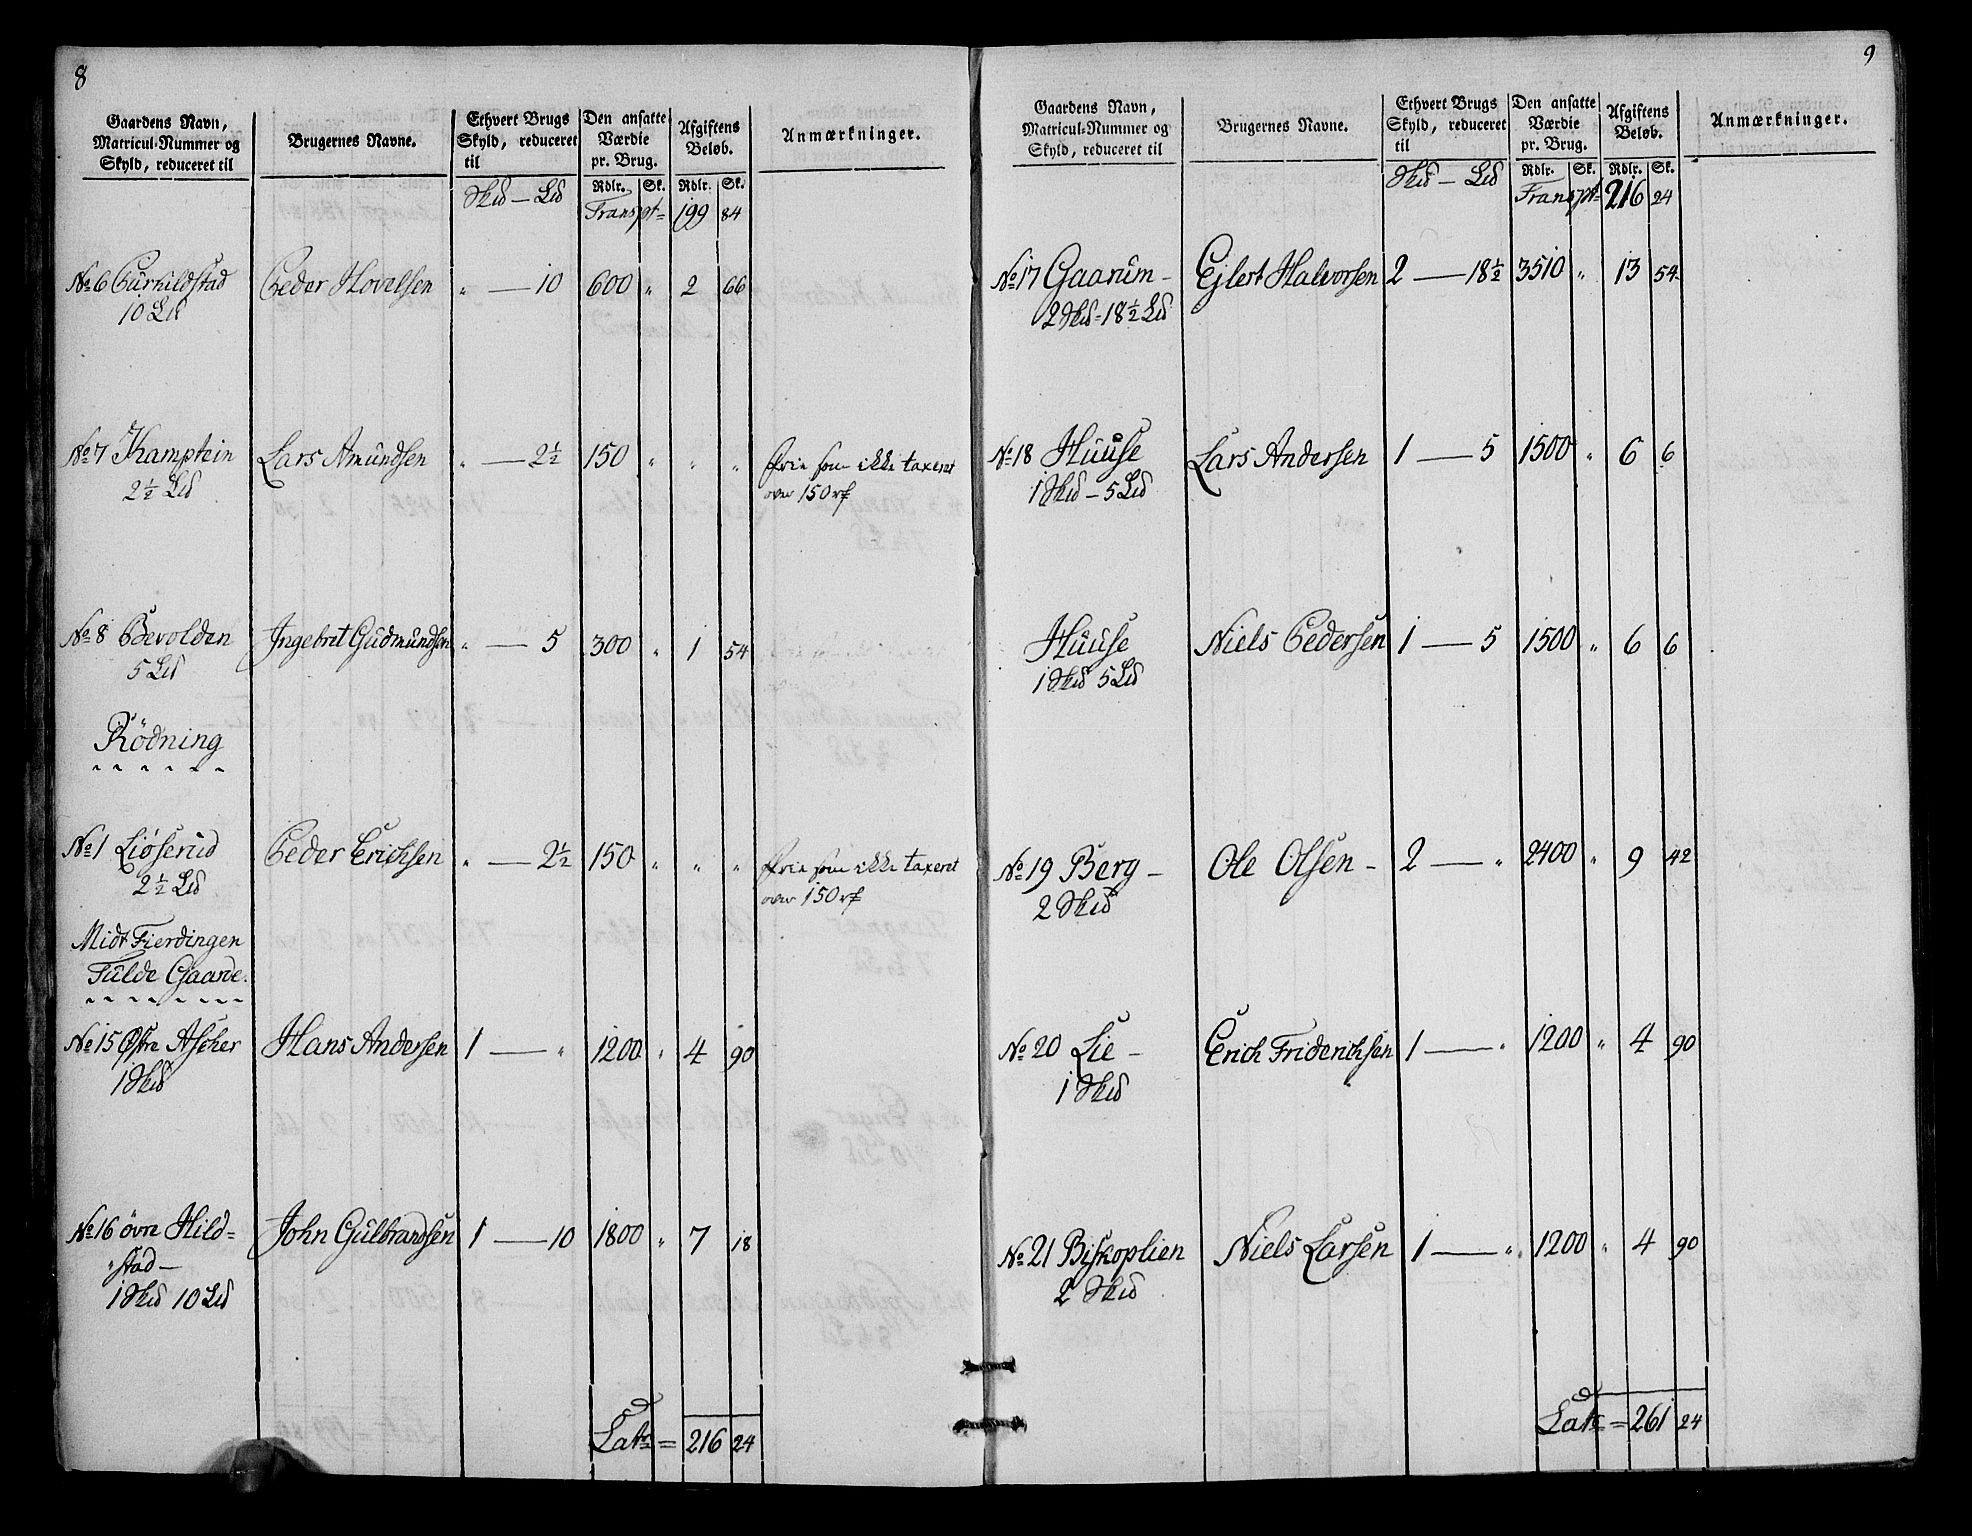 8
Gaardens Navn,
Matricul-Nummer og
Skyld, reduceret til
Brugernes Navne.
Ethvert Brugs
Skyld, reduceret
til
Den ansatte
Værdie
pr. Brug.
Afgiftens
Beløb.
Anmærkninger.
Skd — Ld
Rdlr. Sk. Rdlr. Sk.
Transpt= 199 84
No 6 Gurhildstad Peder Hovelsen " — 10 600 " 2 66
10 Ld
No 7 Kamptein Lars Amundsen " — 2½ 150 " " " frie som ikke taxeret
2½ Ld over 150 rd
No 8 Bevolden Ingebret Gudmundsen " — 5 300 " 1 54
5 Ld
Rödning
No 1 Liøserud Peder Erichsen " — 2½ 150 " " " frie som ikke taxeret
2½ Ld over 150 rd
Midt Fierdingen
Fulde Gaarde.
No 15 Østre Ascher Hans Andersen 1 — " 1200 " 4 90
1 Skd
No 16 övre Hild= John Gulbrandsen 1 — 10 1800 " 7 18
"stad —
1 Skd 10 Ld
Latr = 216 24
9
Gaardens Navn,
Matricul-Nummer og
Skyld, reduceret til
Brugernes Navne.
Ethvert Brugs
Skyld, reduceret
til
Den ansatte
Værdie
pr. Brug.
Afgiftens
Beløb.
Anmærkninger.
Skd — Ld
Rdlr. Sk. Rdlr. Sk.
Transpt= 216 24
No 17 Gaarum — Ejlert Halvorsen 2 — 18½ 3510 " 13 54
2 Skd = 18½ Ld
No 18 Huuse Lars Andersen 1 — 5 1500 " 6 6
1 Skd — 5 Ld
Huuse Niels Pedersen 1 — 5 1500 " 6 6
1 Skd 5 Ld
No 19 Berg — Ole Olsen — 2 — " 2400 " 9 42
2 Skd
No 20 Lie — Erich Friderichsen 1 — " 1200 " 4 90
1 Skd
No 21 Biskoplien Niels Larsen 1 — " 1200 " 4 90
2 Skd
Latr = 261 24